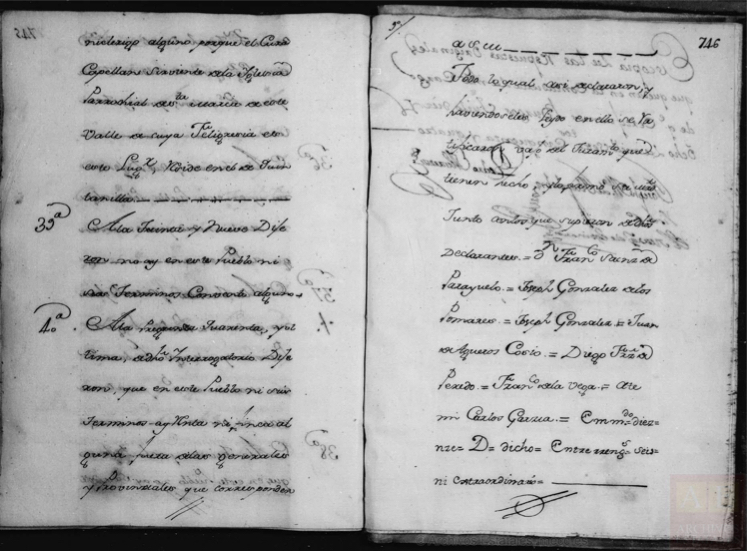 745
ni clerigo alguno porque el Cura
Capellan Sirviente de la Iglesia
Parrochial de Sta. Maria de este
Valle de cuya Feligresia es
este Lugr. reside en el de Quin
tanilla
39a
A la treinta y Nueve Dije
ron no ay en este Pueblo ni
sus Terminos Convento alguno
40a
A la Pregunta quarenta, y ul
tima, de dho Interrogatorio Dije
ron que en este Pueblo ni sus
Terminos ay Renta ni finca al
guna fuera de las Generales
y Provinciales que corresponden
746
a S. M.
Todo lo qual assi declararon, y
haviendoseles leydo en ello se Ra
tificaron vajo del Juramto. que
tienen hecho, y lo firmò su mrd
Junto con los que supieron de dhos
Declarantes = Dn. Franco. Sainz de
Parayuelo = Joseph Gonzalez de los
Pomares = Joseph Gonzalez = Juan
de Agueros Cosio = Diego Frnz. de
Peredo = Franco. de la Vega = Ante
mi Carlos Garcia = Emmdo. diez=
nze= D= dicho= Entre rengs. seis=
ni extraordinario=